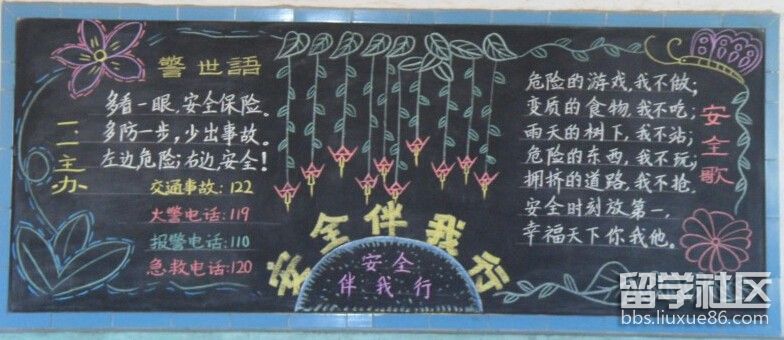 警世語
多看一眼,安全保险。
多防一步,少出事故。
左边危险;右边安全!
交通事故:122
火警电话:119
报警电话:110
急救电话:120
二一主办
安全伴我行
安全
伴我行
安全歌
危险的游戏,我不做;
变质的食物,我不吃;
雨天的树下,我不站;
危险的东西,我不玩;
拥挤的道路,我不抢。
安全时刻放第一,
幸福天下你我他。
留学社区
bbs.liuxue86.com